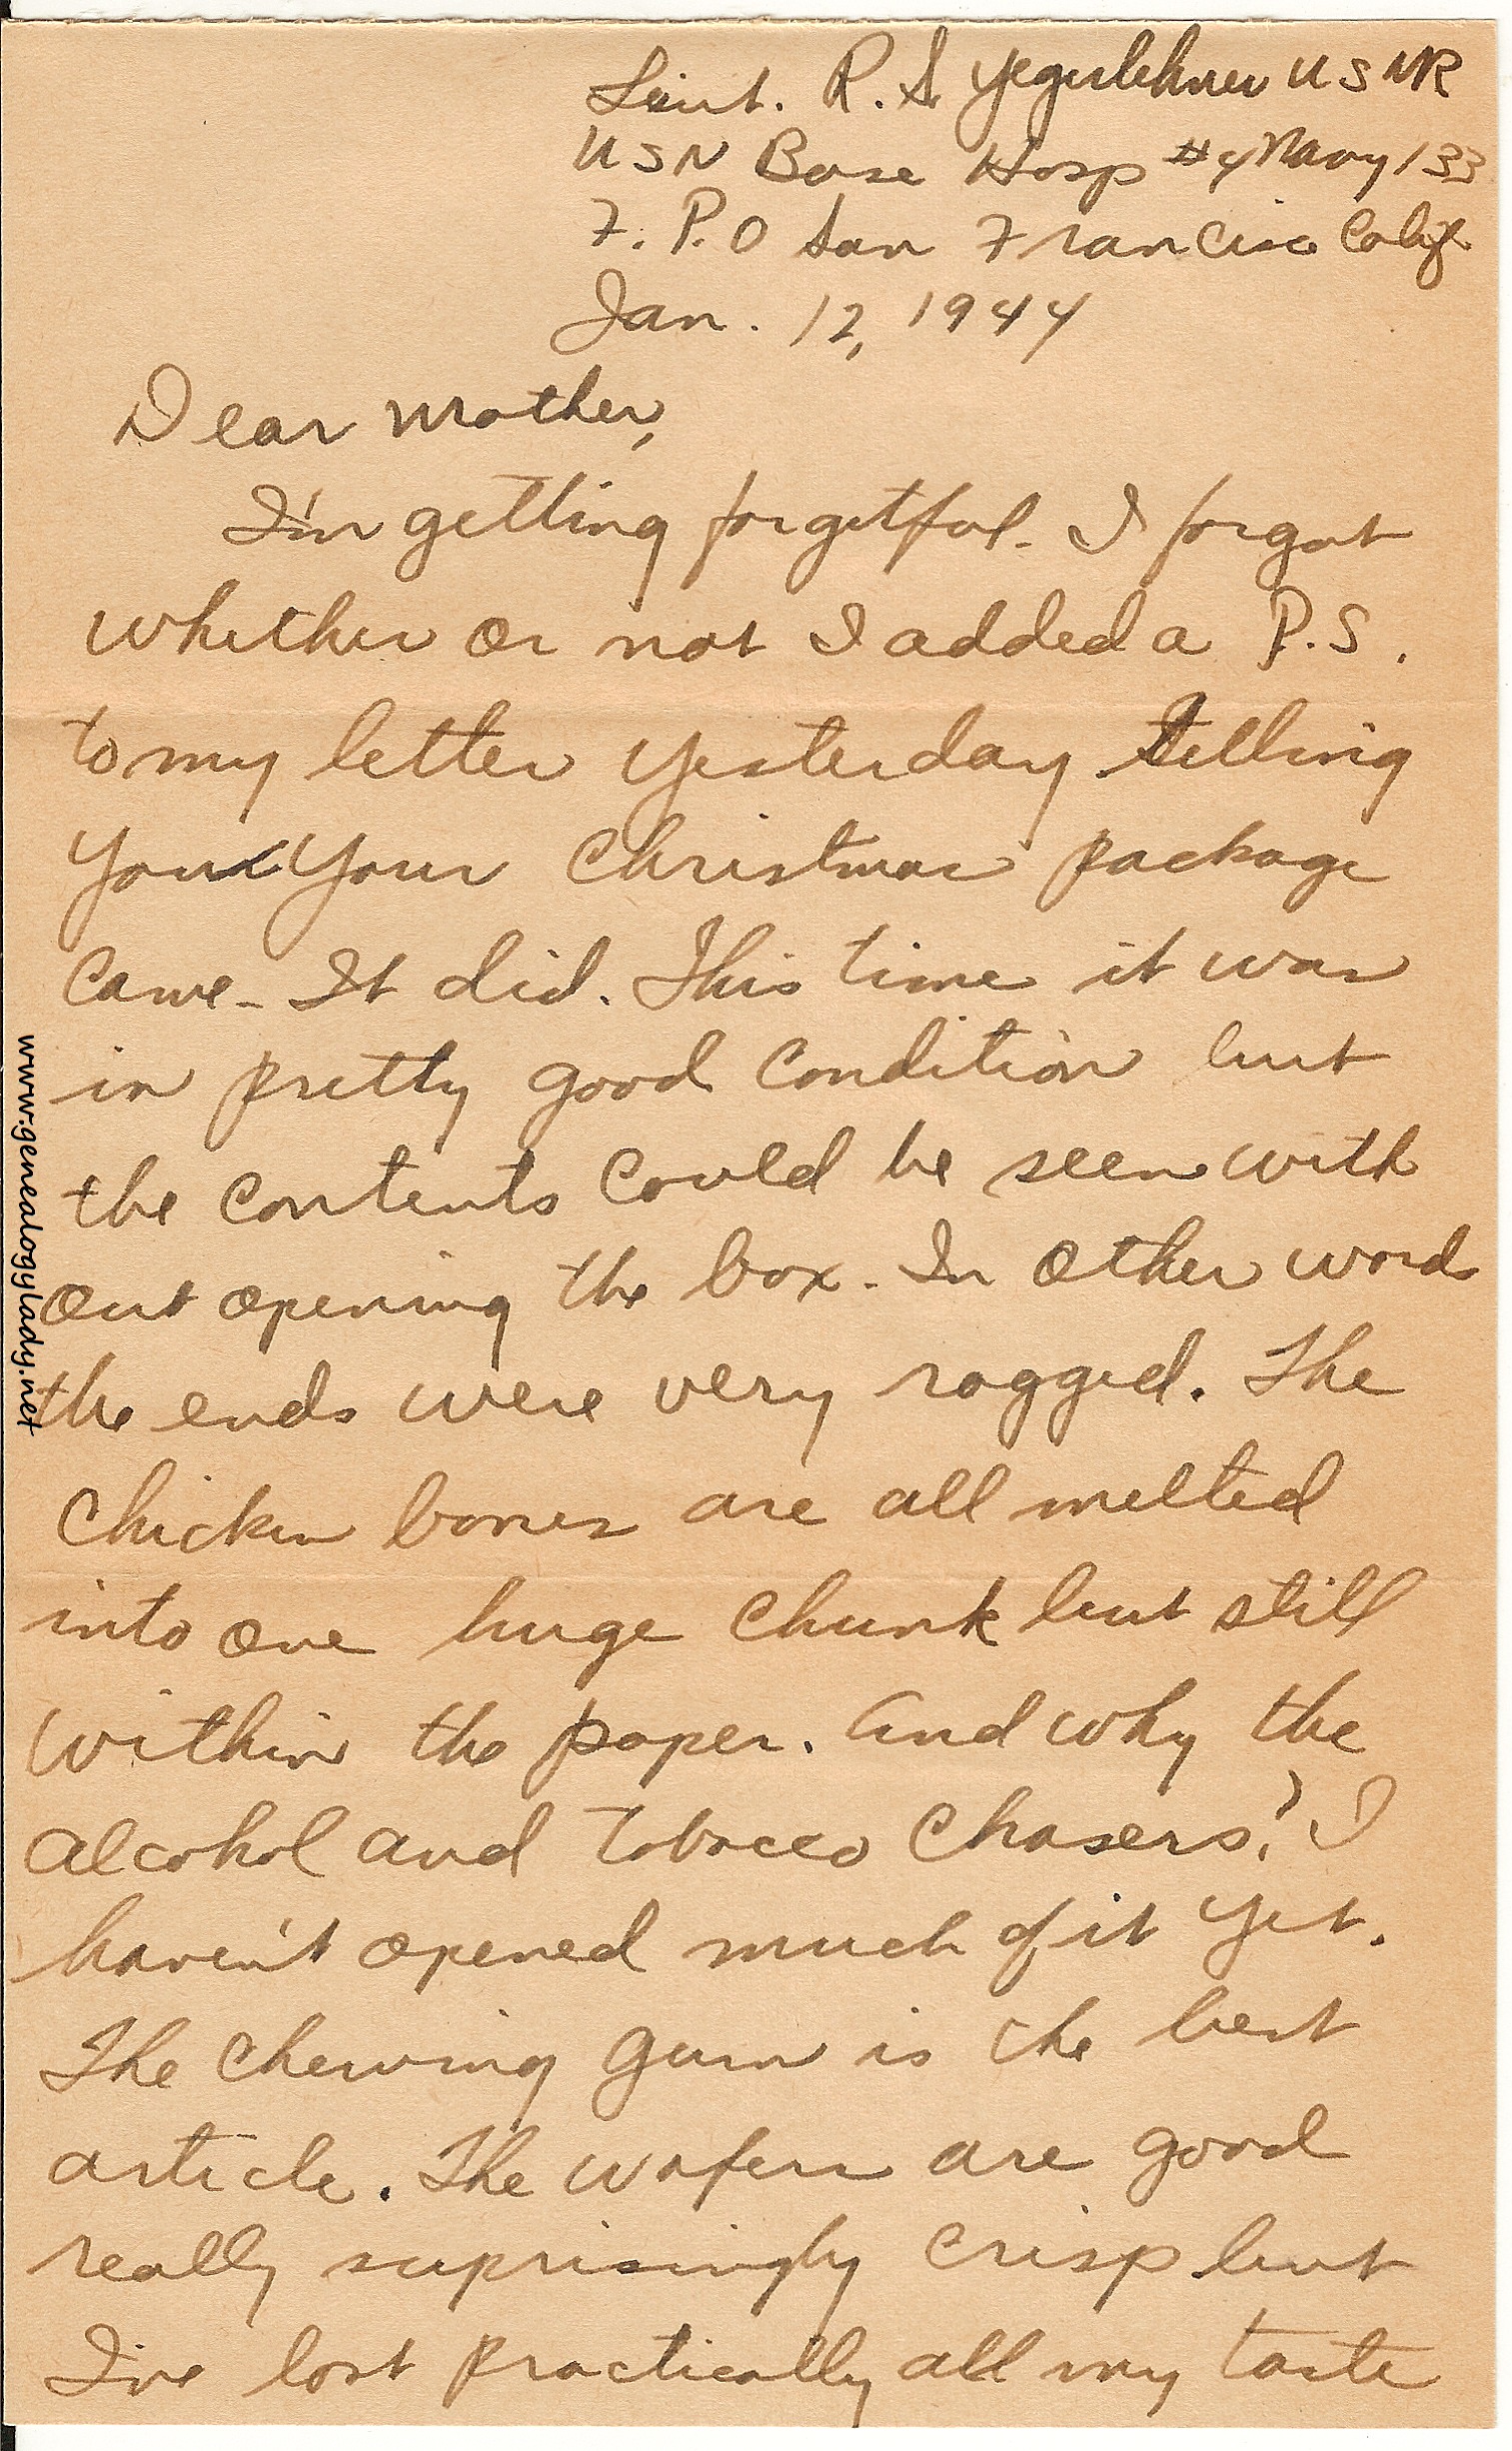 Lieut. R. S. Yegerlehner USNR
USN Base Hosp #4 Navy 133
F. P. O San Francisco Calif
Jan. 12, 1944
Dear Mother,
I'm getting forgetful. I forgot
whether or not I added a P.S.
to my letter yesterday telling
you your Christmas package
came. It did. This time it was
in pretty good condition but
the contents could be seen with
out opening the box. In other words
the ends were very ragged. The
chicken bones are all melted
into one huge chunk but still
within the paper. And why the
alcohol and tobacco chasers? I
haven't opened much of it yet.
The chewing gum is the best
article. The wafers are good
really suprisingly crisp but
I've lost practically all my taste
www.genealogylady.net